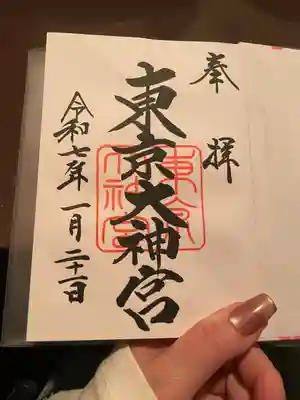 奉拝
東京大神宮
東京大神宮
令和七年一月二十一日